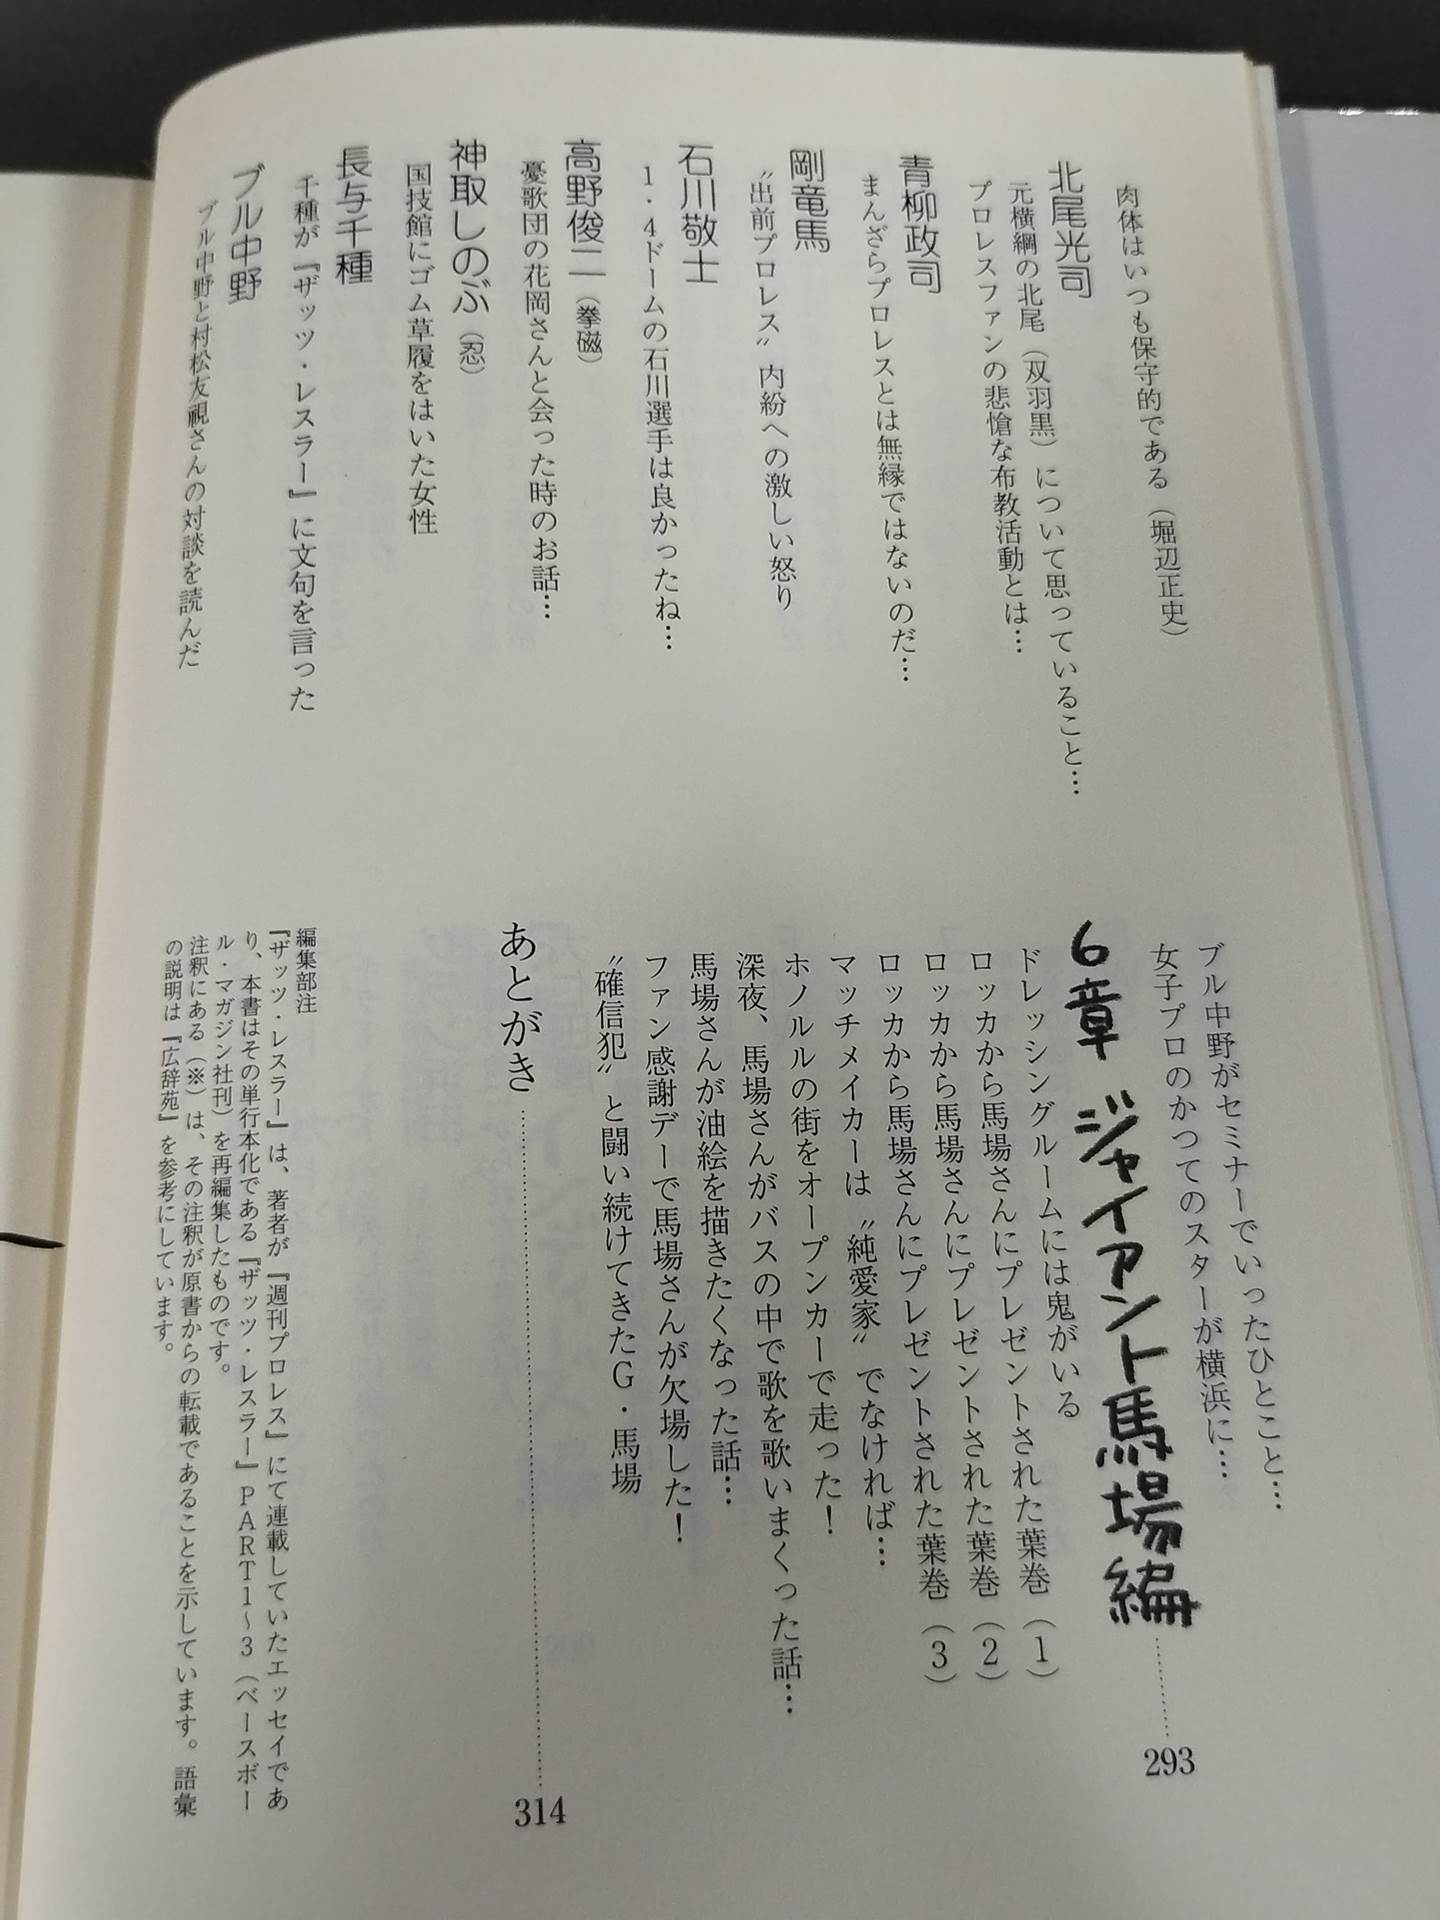 肉体はいつも保守的である（堀辺正史）
北尾光司
元横綱の北尾（双羽黒）について思っていること…
プロレスファンの悲愴な布教活動とは…
青柳政司
まんざらプロレスとは無縁ではないのだ…
剛竜馬
〝出前プロレス〟内紛への激しい怒り
石川敬士
1・4ドームの石川選手は良かったね…
高野俊二（拳磁）
憂歌団の花岡さんと会った時のお話…
神取しのぶ（忍）
国技館にゴム草履をはいた女性
長与千種
千種が『ザッツ・レスラー』に文句を言った
ブル中野
ブル中野と村松友視さんの対談を読んだ
ブル中野がセミナーでいったひとこと…
女子プロのかつてのスターが横浜に…
6章 ジャイアント馬場編 293
ドレッシングルームには鬼がいる
ロッカから馬場さんにプレゼントされた葉巻（1）
ロッカから馬場さんにプレゼントされた葉巻（2）
ロッカから馬場さんにプレゼントされた葉巻（3）
マッチメイカーは〝純愛家〟でなければ…
ホノルルの街をオープンカーで走った！
深夜、馬場さんがバスの中で歌を歌いまくった話…
馬場さんが油絵を描きたくなった話…
ファン感謝デーで馬場さんが欠場した！
〝確信犯〟と闘い続けてきたG・馬場
あとがき 314
編集部注
『ザッツ・レスラー』は、著者が『週刊プロレス』にて連載していたエッセイであ
り、本書はその単行本化である『ザッツ・レスラー』PART1～3（ベースボー
ル・マガジン社刊）を再編集したものです。
注釈にある（※）は、その注釈が原書からの転載であることを示しています。語彙
の説明は『広辞苑』を参考にしています。